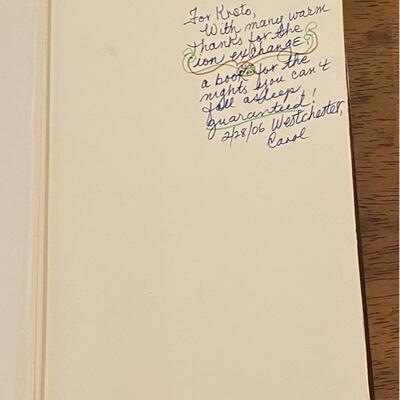 For Krsto,
With many warm
thanks for the
ion exchange,
a book for the
nights you can't
fall asleep,
guaranteed!
2/28/06 Westchester,
Carol